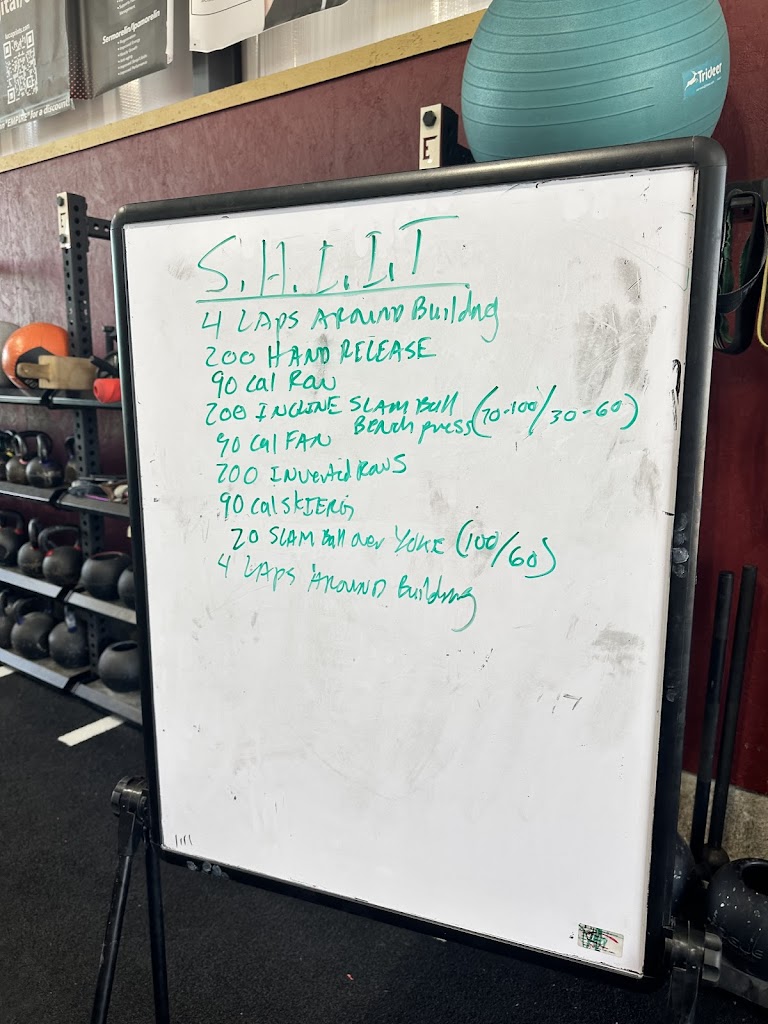 Sermorelin/Ipamorelin
"EMPIRE" for a discount
Trideer
E
E
S.H.I.I.T
4 LAPS AROUND Building
200 HAND RELEASE
90 Cal Row
200 INCLINE SLAM Ball
Bench press (70-100/30-60)
90 Cal FAN
200 Inverted Rows
90 Cal SKIERG
20 SLAM Ball over YOKE (100/60)
4 LAPS AROUND Building